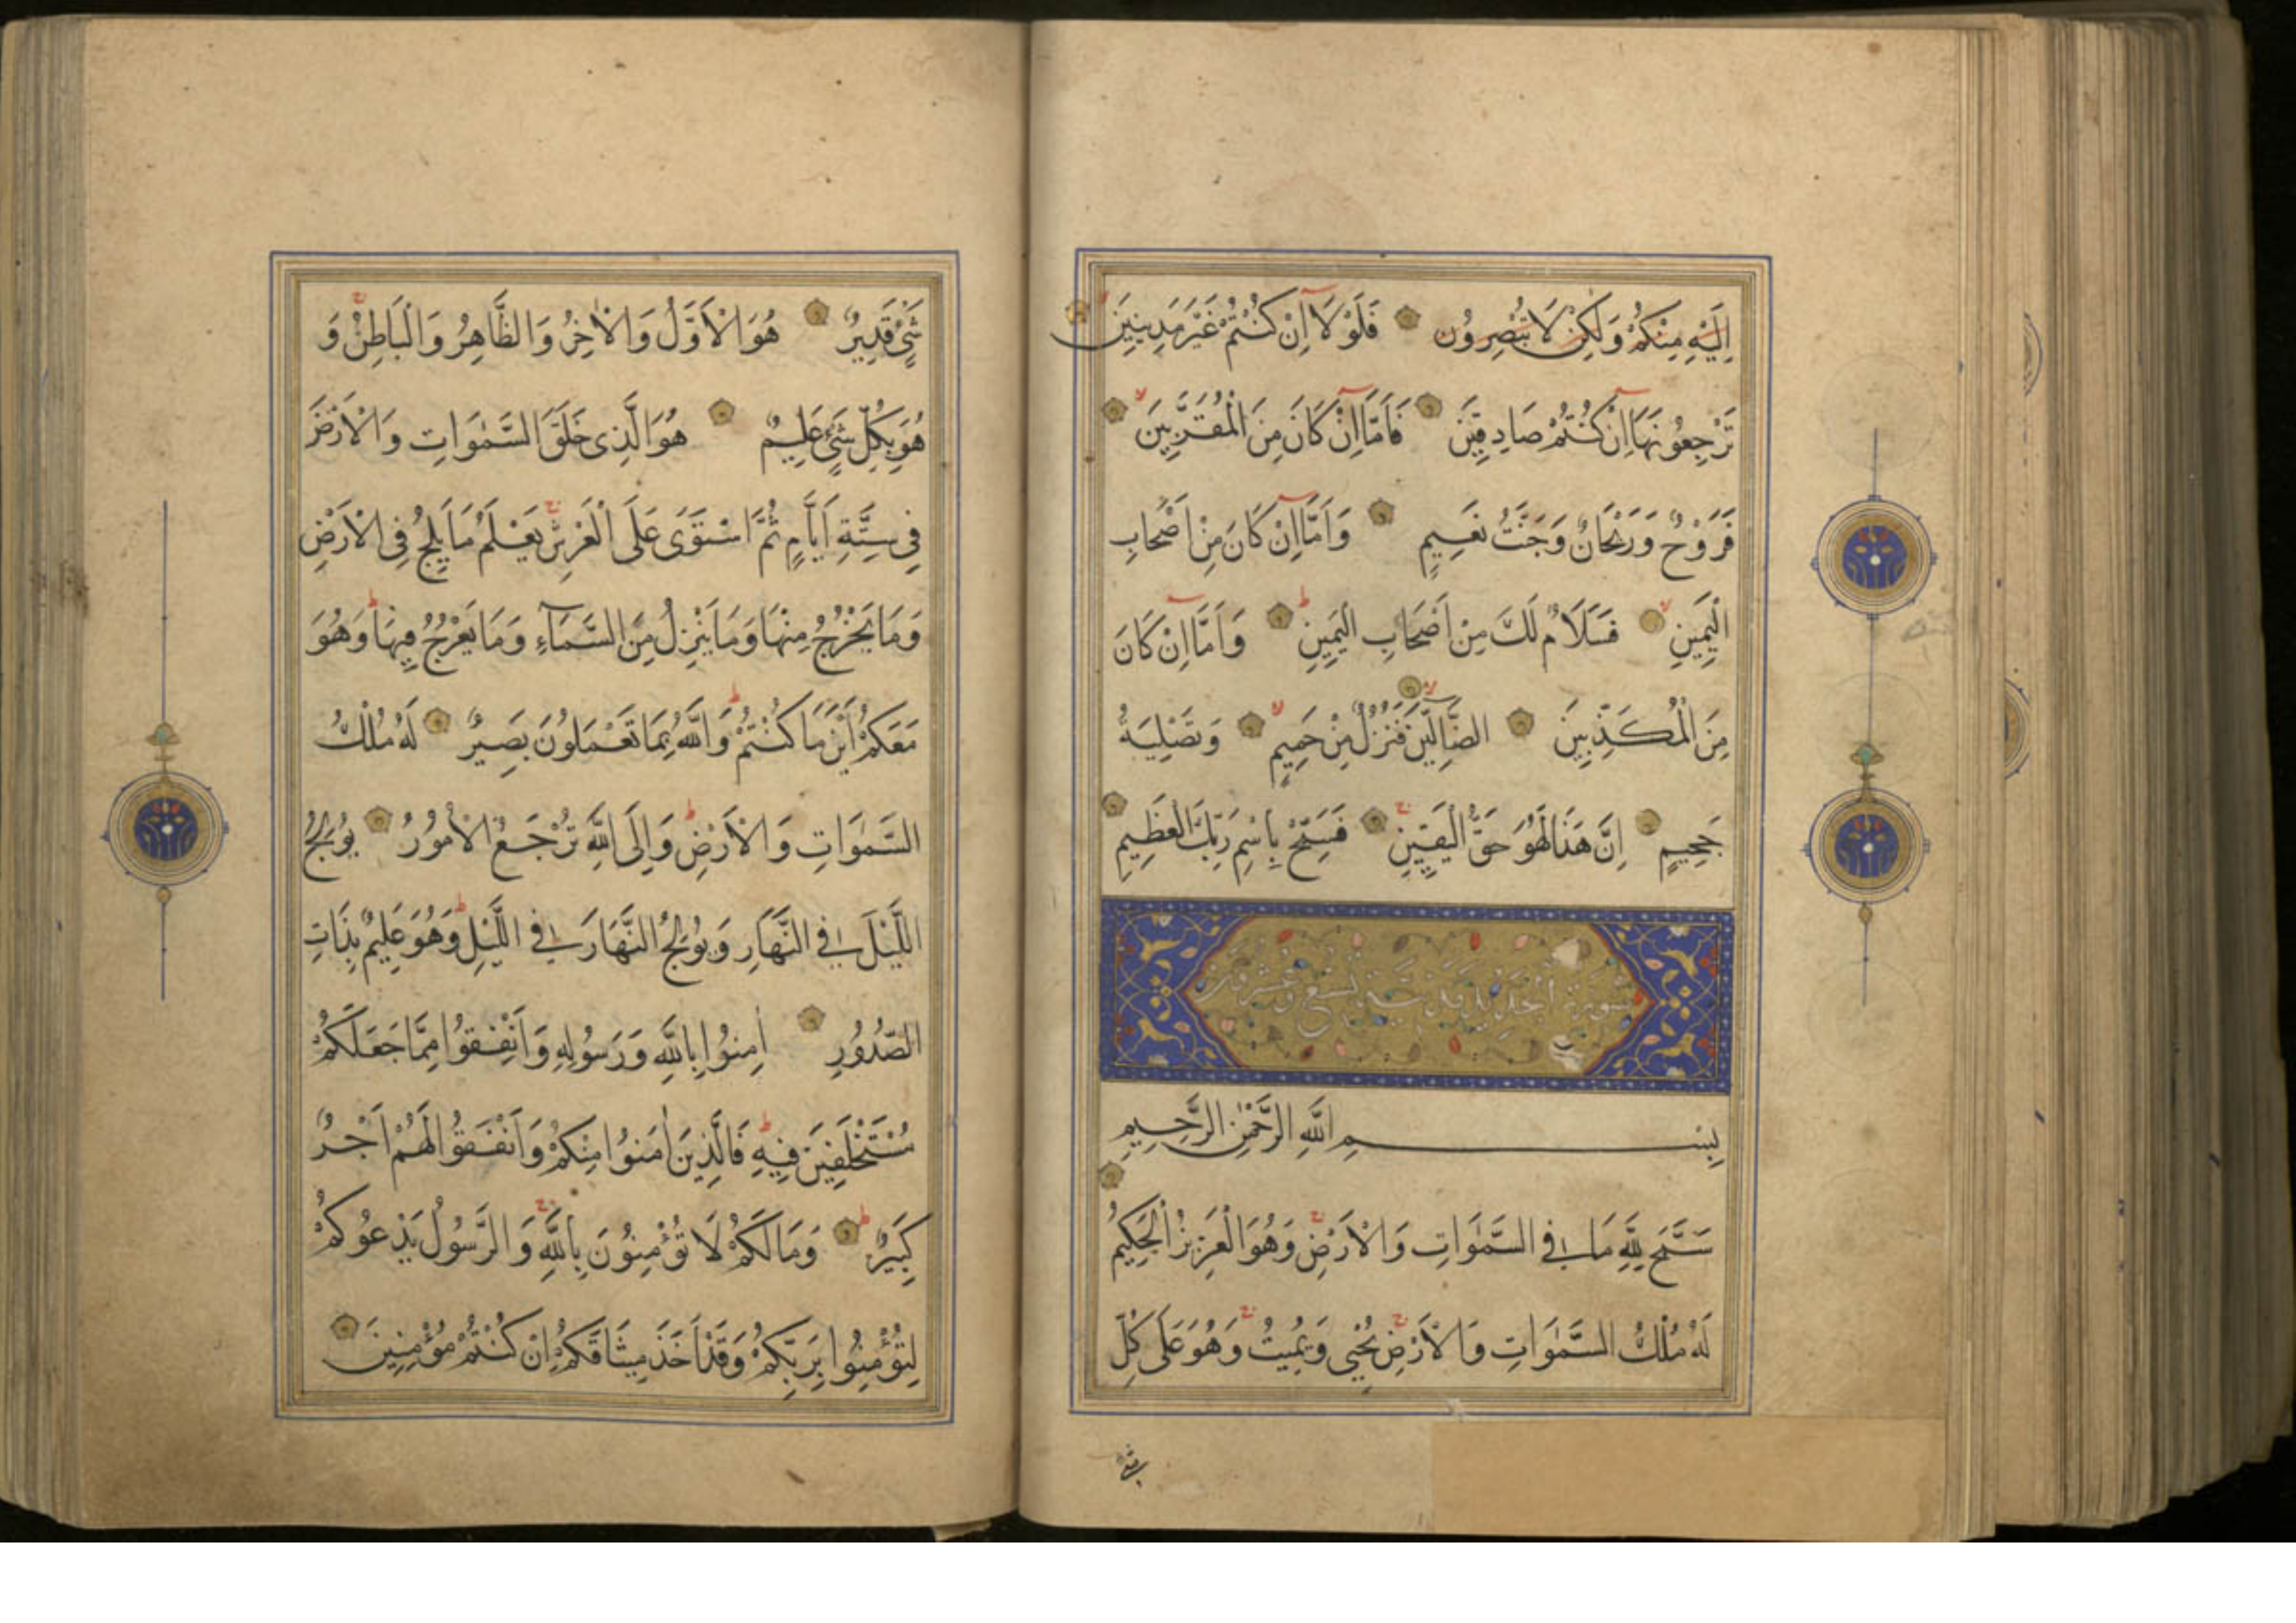 اِلَيْهِ مِنْكُمْ وَلَكِنْ لَا تُبْصِرُونَ فَلَوْلَا اِنْ كُنْتُمْ غَيْرَ مَدِينِينَ
تَرْجِعُونَهَا اِنْ كُنْتُمْ صَادِقِينَ فَاَمَّا اِنْ كَانَ مِنَ الْمُقَرَّبِينَ
فَرَوْحٌ وَرَيْحَانٌ وَجَنَّتُ نَعِيمٍ وَاَمَّا اِنْ كَانَ مِنْ اَصْحَابِ
الْيَمِينِ فَسَلَامٌ لَكَ مِنْ اَصْحَابِ الْيَمِينِ وَاَمَّا اِنْ كَانَ
مِنَ الْمُكَذِّبِينَ الضَّالِّينَ فَنُزُلٌ مِنْ حَمِيمٍ وَتَصْلِيَةُ
جَحِيمٍ اِنَّ هَذَا لَهُوَ حَقُّ الْيَقِينِ فَسَبِّحْ بِاسْمِ رَبِّكَ الْعَظِيمِ
سورة الحديد مدنية تسع وعشرون
بِسْمِ اللَّهِ الرَّحْمٰنِ الرَّحِيمِ
سَبَّحَ لِلَّهِ مَا فِي السَّمٰوَاتِ وَالْاَرْضِ وَهُوَ الْعَزِيزُ الْحَكِيمُ
لَهُ مُلْكُ السَّمٰوَاتِ وَالْاَرْضِ يُحْيِي وَيُمِيتُ وَهُوَ عَلَى كُلِّ
شَيْءٍ
شَيْءٍ قَدِيرٌ هُوَ الْاَوَّلُ وَالْاٰخِرُ وَالظَّاهِرُ وَالْبَاطِنُ وَ
هُوَ بِكُلِّ شَيْءٍ عَلِيمٌ هُوَ الَّذِي خَلَقَ السَّمٰوَاتِ وَالْاَرْضَ
فِي سِتَّةِ اَيَّامٍ ثُمَّ اسْتَوَى عَلَى الْعَرْشِ يَعْلَمُ مَا يَلِجُ فِي الْاَرْضِ
وَمَا يَخْرُجُ مِنْهَا وَمَا يَنْزِلُ مِنَ السَّمَآءِ وَمَا يَعْرُجُ فِيهَا وَهُوَ
مَعَكُمْ اَيْنَ مَا كُنْتُمْ وَاللَّهُ بِمَا تَعْمَلُونَ بَصِيرٌ لَهُ مُلْكُ
السَّمٰوَاتِ وَالْاَرْضِ وَاِلَى اللَّهِ تُرْجَعُ الْاُمُورُ يُولِجُ
اللَّيْلَ فِي النَّهَارِ وَيُولِجُ النَّهَارَ فِي اللَّيْلِ وَهُوَ عَلِيمٌ بِذَاتِ
الصُّدُورِ اٰمِنُوا بِاللَّهِ وَرَسُولِهِ وَاَنْفِقُوا مِمَّا جَعَلَكُمْ
مُسْتَخْلَفِينَ فِيهِ فَالَّذِينَ اٰمَنُوا مِنْكُمْ وَاَنْفَقُوا لَهُمْ اَجْرٌ
كَبِيرٌ وَمَا لَكُمْ لَا تُؤْمِنُونَ بِاللَّهِ وَالرَّسُولُ يَدْعُوكُمْ
لِتُؤْمِنُوا بِرَبِّكُمْ وَقَدْ اَخَذَ مِيثَاقَكُمْ اِنْ كُنْتُمْ مُؤْمِنِينَ